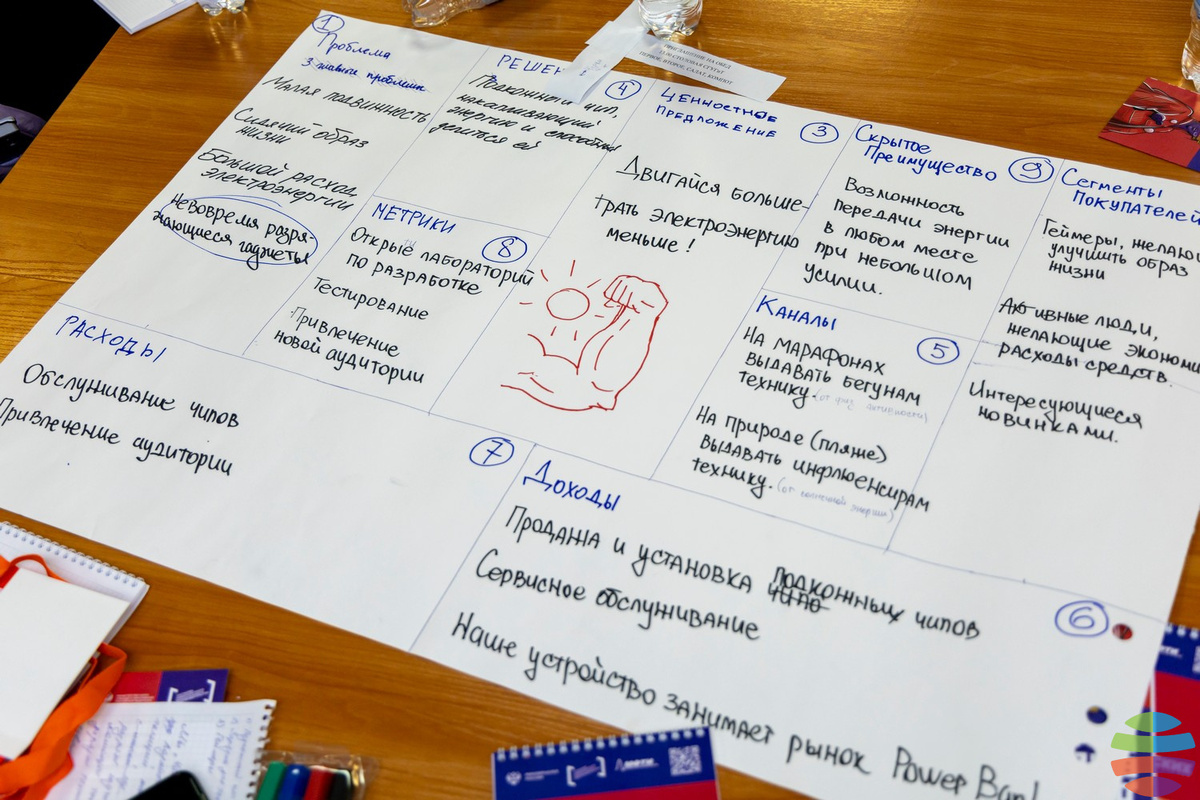 1
Проблема
3 главные проблемы
Малая подвижность
Сидячий образ
жизни
Большой расход
электроэнергии
Невовремя разря-
жающиеся гаджеты
4
Подкожный чип,
накапливающий
энергию и способный
делиться ей
МЕТРИКИ
8
Открые лабораторий
по разработке
Тестирование
Привлечение
новой аудитории
ЦЕННОСТНОЕ
ПРЕДЛОЖЕНИЕ
3
Двигайся больше-
трать электроэнергию
меньше!
Скрытое
Преимущество
9
Возможность
передачи энергии
в любом месте
при небольшом
усилии.
Каналы
5
На марафонах
выдавать бегунам
технику. (от физ. активности)
На природе (пляже)
выдавать инфлюенсирам
технику. (от солнечной энергии)
Сегменты
Покупателей
Геймеры,
улучшить образ
жизни
люди,
желающие
расходы средств.
Интересующиеся
новинками.
РАСХОДЫ
7
Обслуживание чипов
Привлечение аудитории
Доходы
6
Продажа и установка подкожных чипов
Сервисное обслуживание
Наше устройство занимает рынок Power
ПРИГЛАШЕНИЕ НА ОБЕД
ПЕРВОЕ, ВТОРОЕ, САЛАТ, КОМПОТ